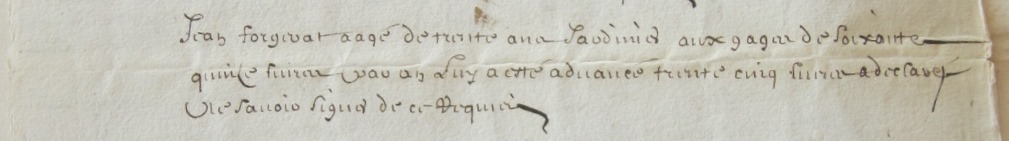 Jean forgerat aagé de trente ans Jardinier aux gages de soixante
quinze livres par an Luy a esté advancé trente cinq livres a declaré
Ne savoir signer de ce Requis